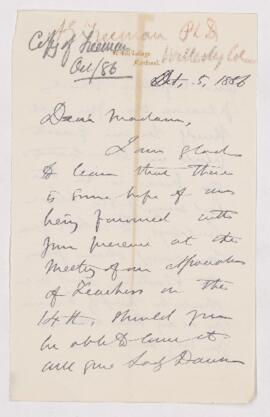 A. Freeman Ph D
Wellesley Col
Copy of Freeman
Oct/86
Oct. 5, 1886
Dear Madam,
I am glad
to learn that there
is some hope of our
being favoured with
your presence at the
Meeting of our Association
of Teachers on the
14th. Should you
be able to come it
will give Lady Dawson